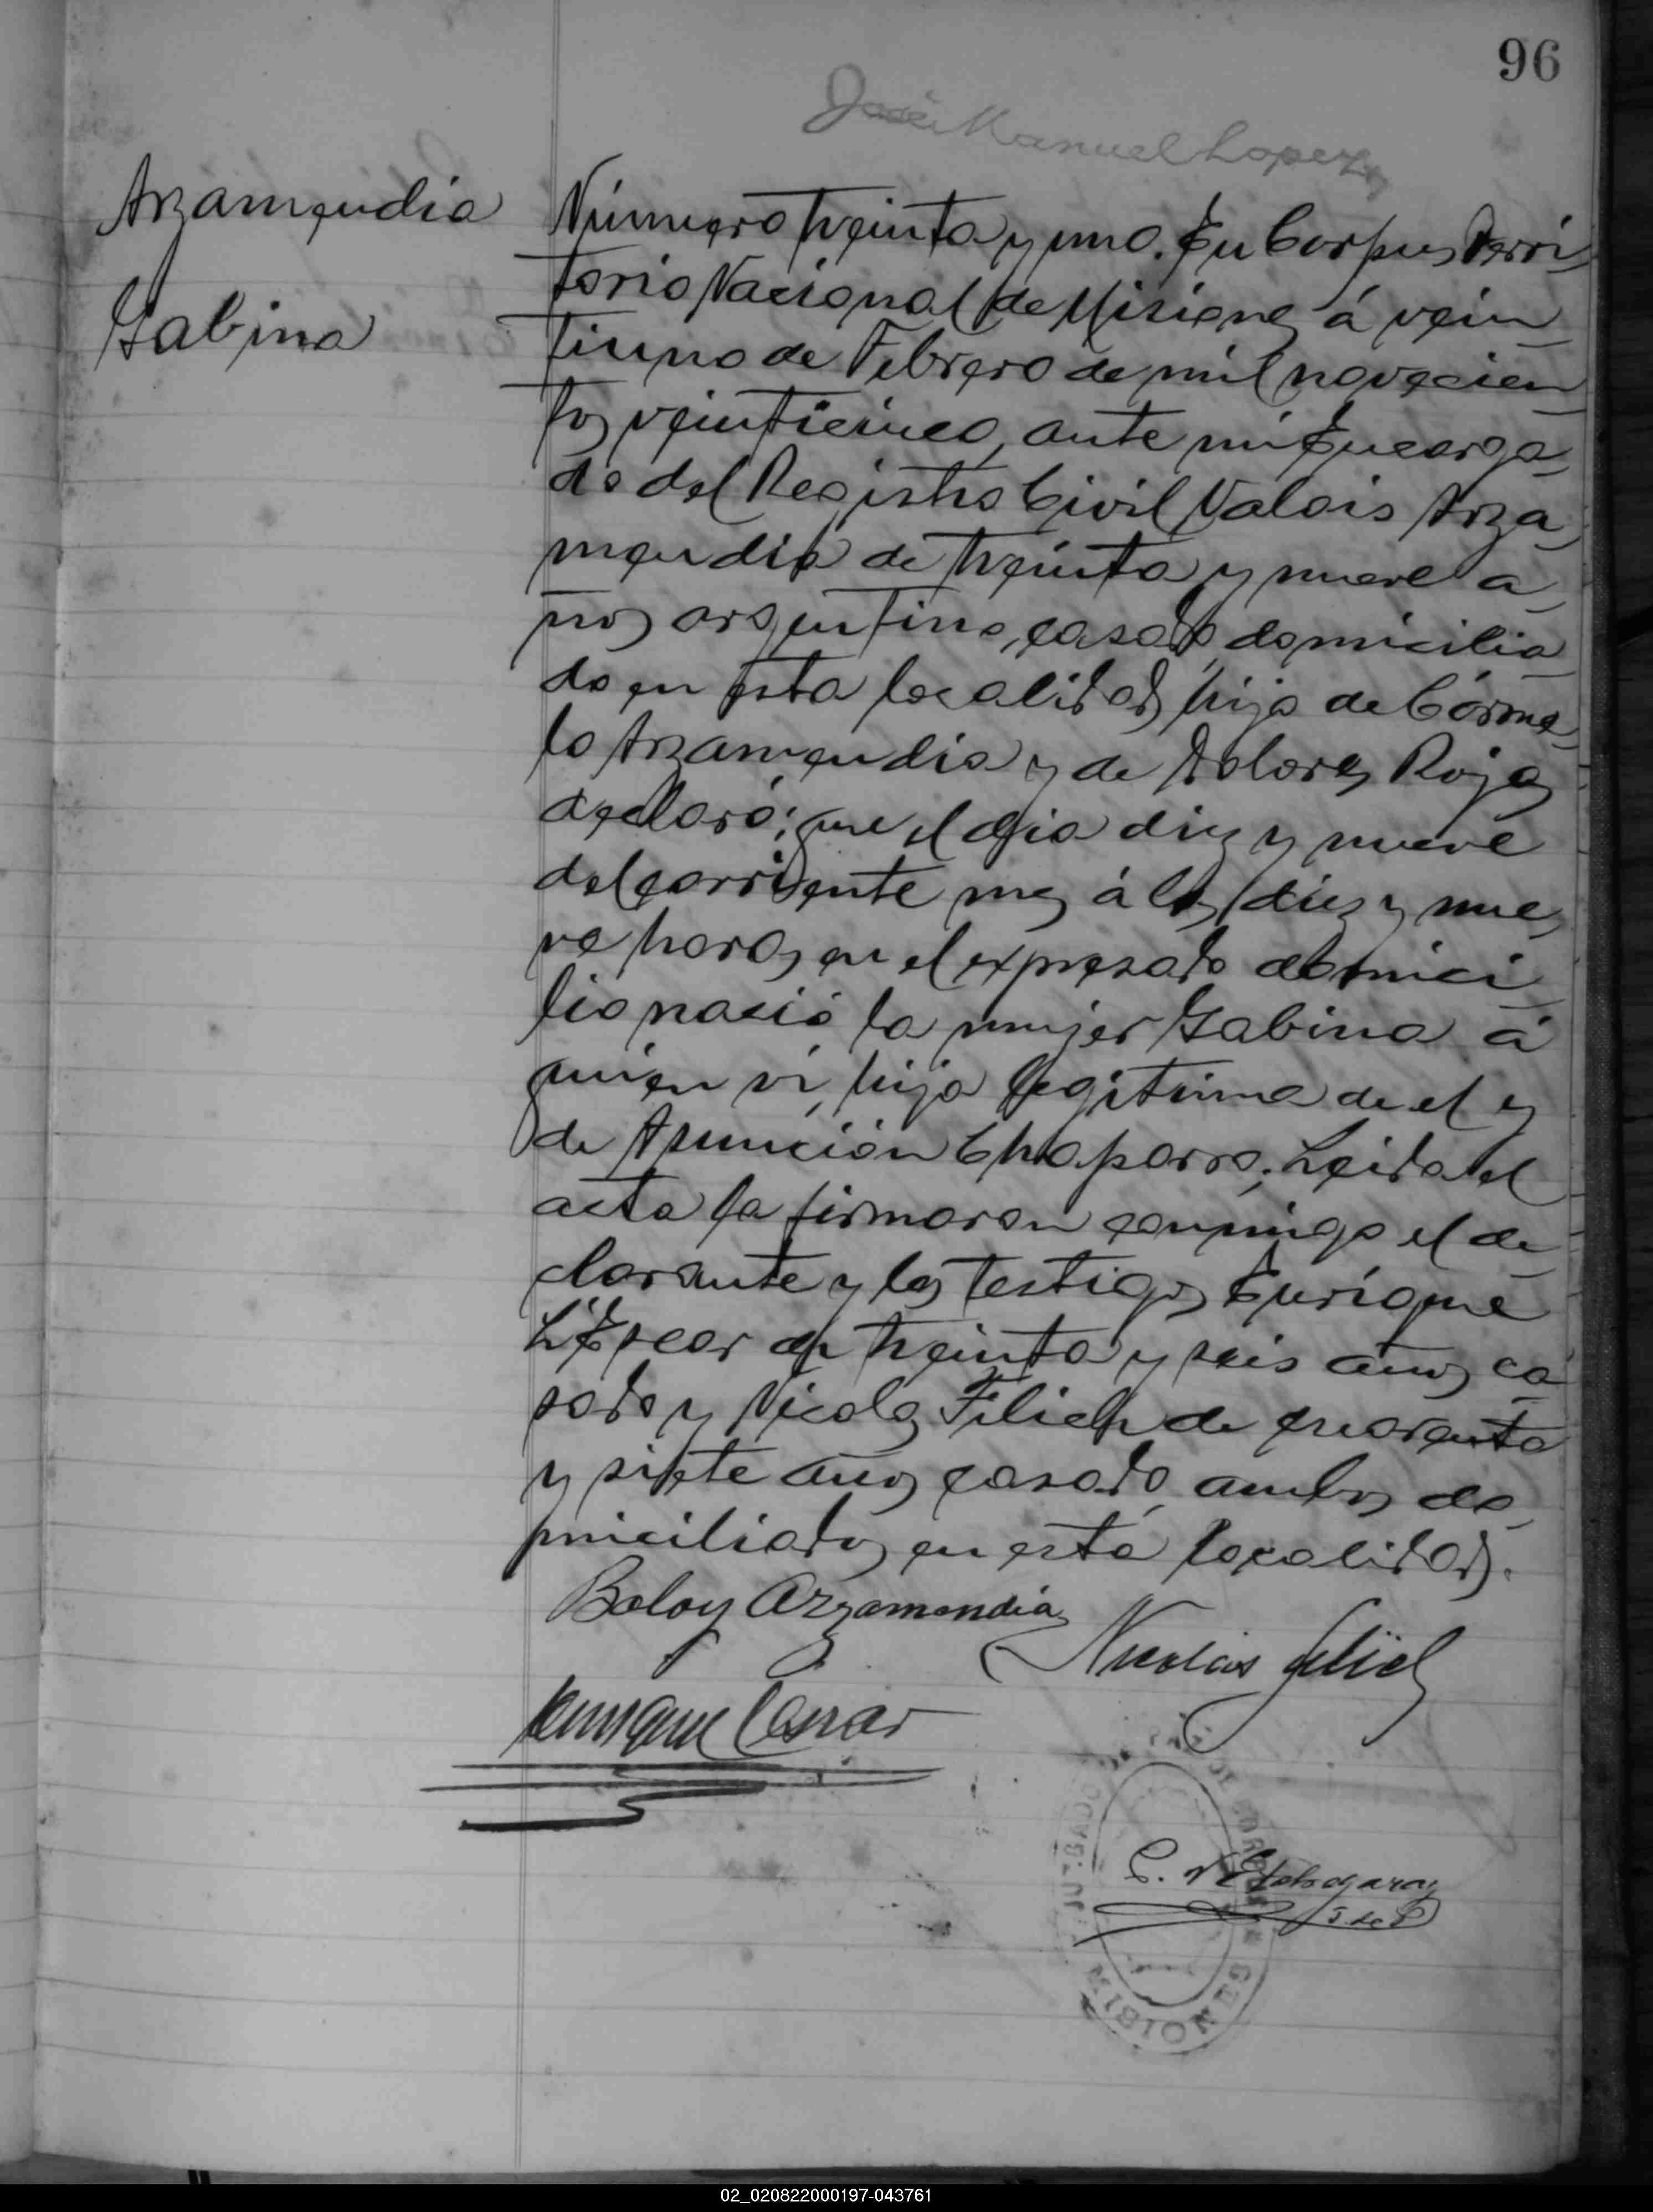 96
José Manuel Lopez
Arzamendia
Gabina
Número treinta y uno. En Corpus Terri-
torio Nacional de Misiones á vein-
tiuno de Febrero de mil novecien-
tos veinticinco, ante mi Encarga-
do del Registro Civil, Valois Arza-
mendia de treinta y nueve a-
ños argentino, casado, domicilia-
do en esta localidad, hijo de Cárme-
lo Arzamendia y de Dolores Rojas
declaró: que el dia diez y nueve
del corriente mes á las diez y nue-
ve horas, en el expresado domici-
lio nació la mujer Gabina á
quien vi, hija legitima de el y
de Asunción Chaparro. Leida el
acta la firmaron conmigo el de-
clarante y los testigos Enrique
de treinta y seis años, ca-
sado y Nicolas Filich de cuarenta
y siete años, casado, ambos do-
miciliados en esta localidad.
Baloy Arzamendia
Nicolas Filich
Enrique
Etchegaray
J. de P
MISIONES
02_020822000197-043761